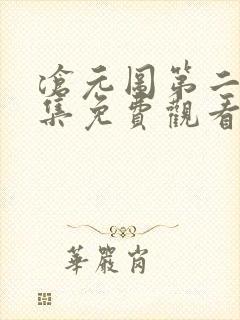 滄元圖第二
集免費觀看
華嚴岗